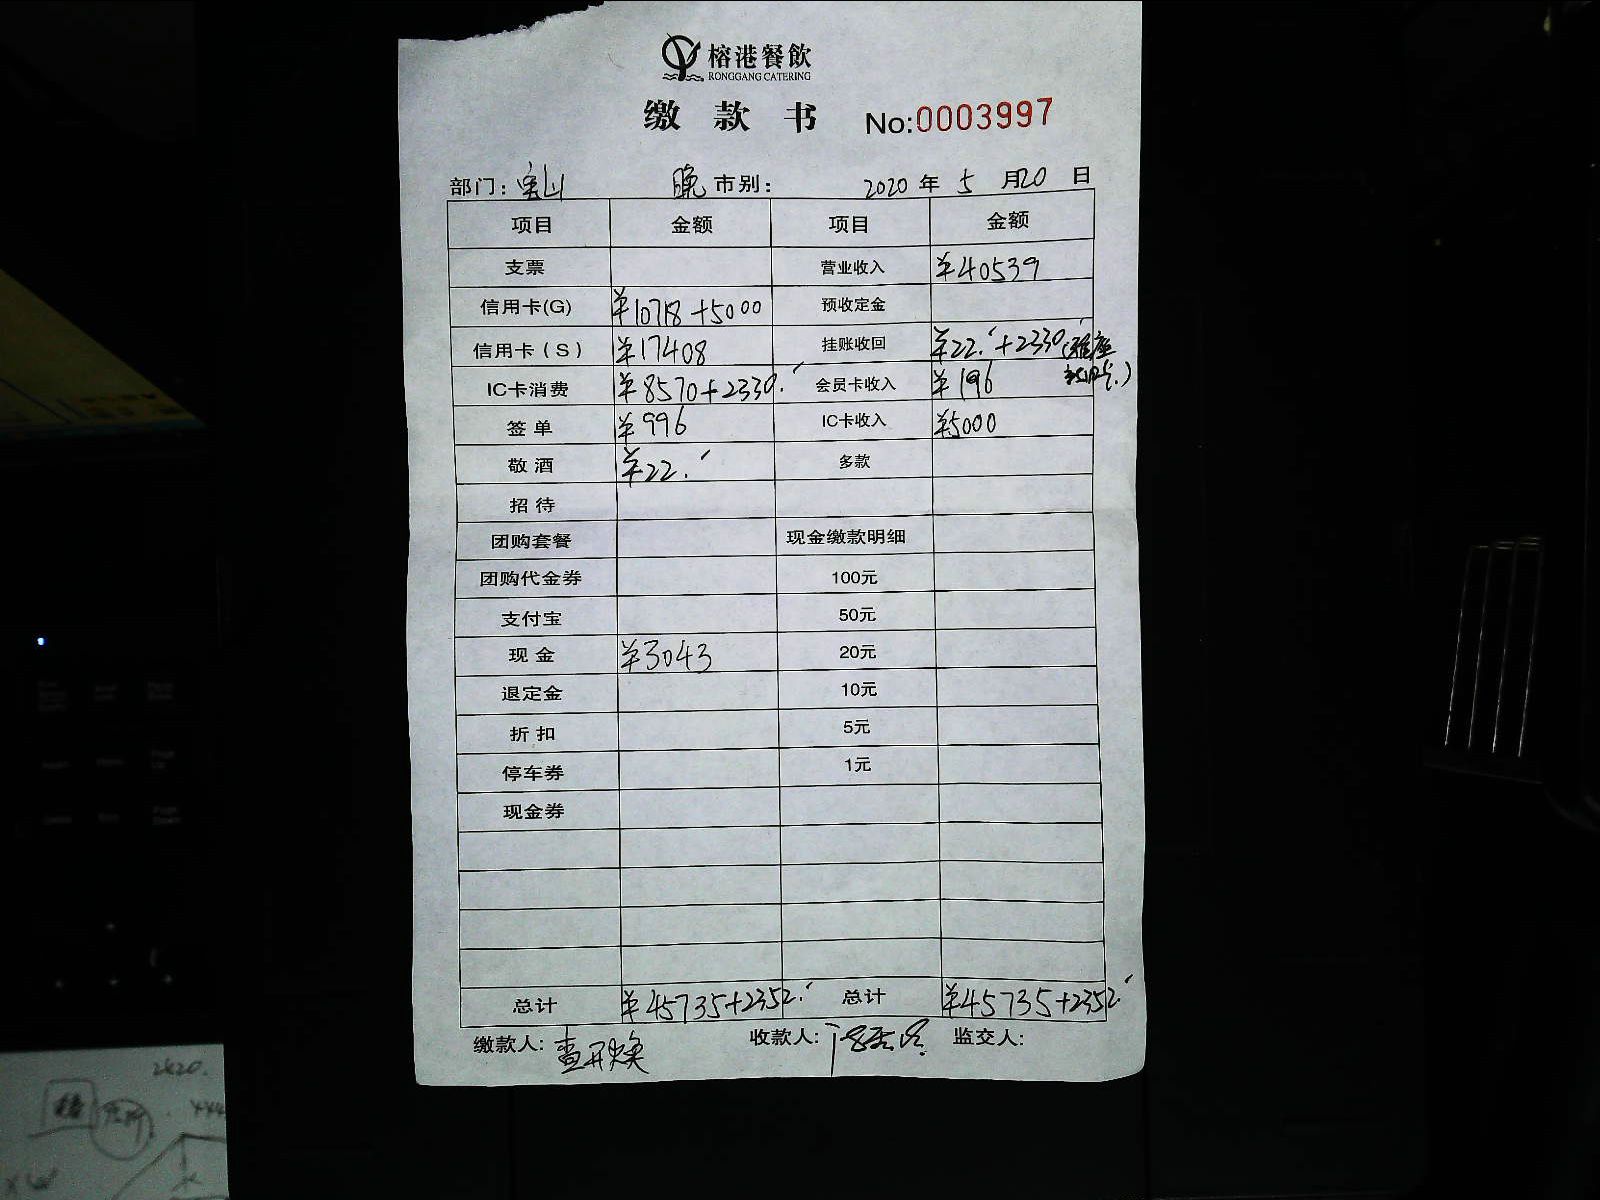 榕港餐飲
RONGGANG CATERING
缴 款 书 No:0003997
部门：宝山 晚 市别： 2020 年 5 月 20 日
项目 金额 项目 金额
支票 营业收入 ¥40539
信用卡(G) ¥10718+5000 预收定金
信用卡（S） ¥17408 挂账收回 ¥22.+2330(雅座
IC卡消费 ¥8570+2330. 会员卡收入 ¥196
签 单 ¥996 IC卡收入 ¥5000
敬 酒 ¥22. 多款
招 待
团购套餐 现金缴款明细
团购代金券 100元
支付宝 50元
现 金 ¥3043 20元
退定金 10元
折 扣 5元
停车券 1元
现金券
总计 ¥45735+2352. 总计 ¥45735+2352.
缴款人: 收款人: 监交人:
2620.